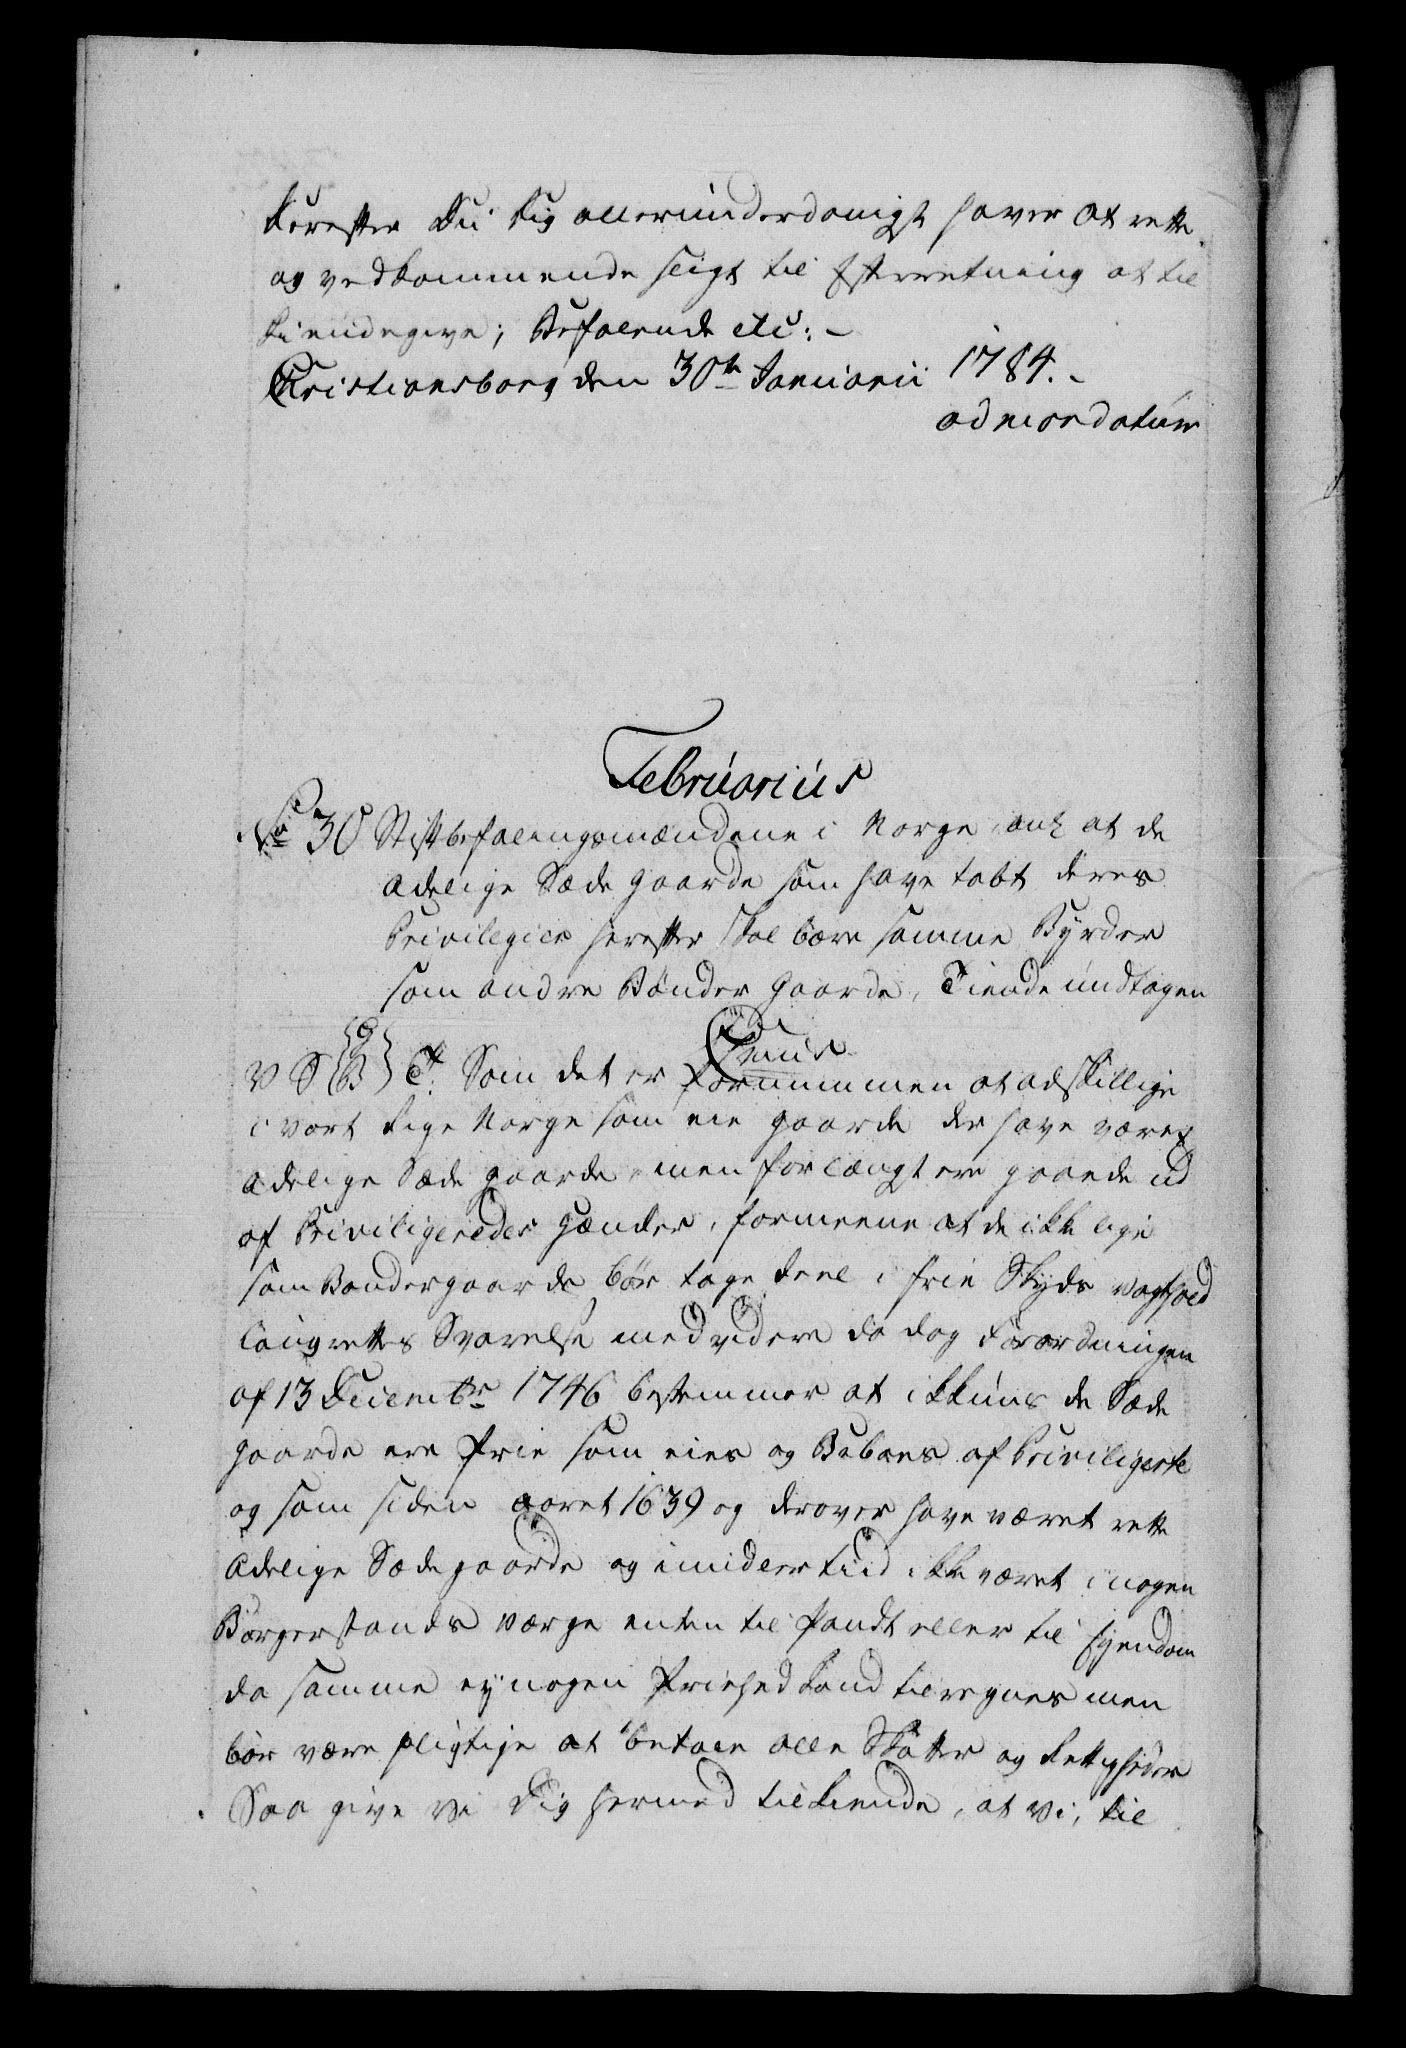 derefter Du Dig allerunderdanigst haver at rette
og vedkommende sligt til Efterretning at til
kiendegive; Befalende etc: –
Christiansborg den 30te Januarii 1784. –
ad mandatum
Februarius
No 30 Stiftbefalingsmændene i Norge anl at de
adelige Sæde gaarde som have tabt deres
Privilegier herefter skal bære samme Byrder
som andre Bønder Gaarde, Tiende undtagen
V S { G B } T. Som det er fornummen at adskillige
i vort Rige Norge som eie gaarde der have været
adelige Sæde gaarde, men forlængst ere gaaede ud
af Priviligeredes Hænder, formeene at de ikke lige
som Bondergaarde bør tage Deel i frie Skyds Vaghold
Laugrettes Svarelse med videre da dog Forordningen
af 13 Decembr 1746 bestemmer at ikkuns de Sæde
gaarde ere frie som eies og Beboes af Priviligerte
og som siden aaret 1639 og derover have været rette
Adelige Sædegaarde og imidlertiid ikke været i nogen
Borgerstands værge enten til Pandt eller til Eyendom
da samme ey nogen Friehed kand tilregnes men
bør være pligtige at betale alle Skatter og Rettigheder
Saa give Vi Dig hermed tilkiende, at Vi, til